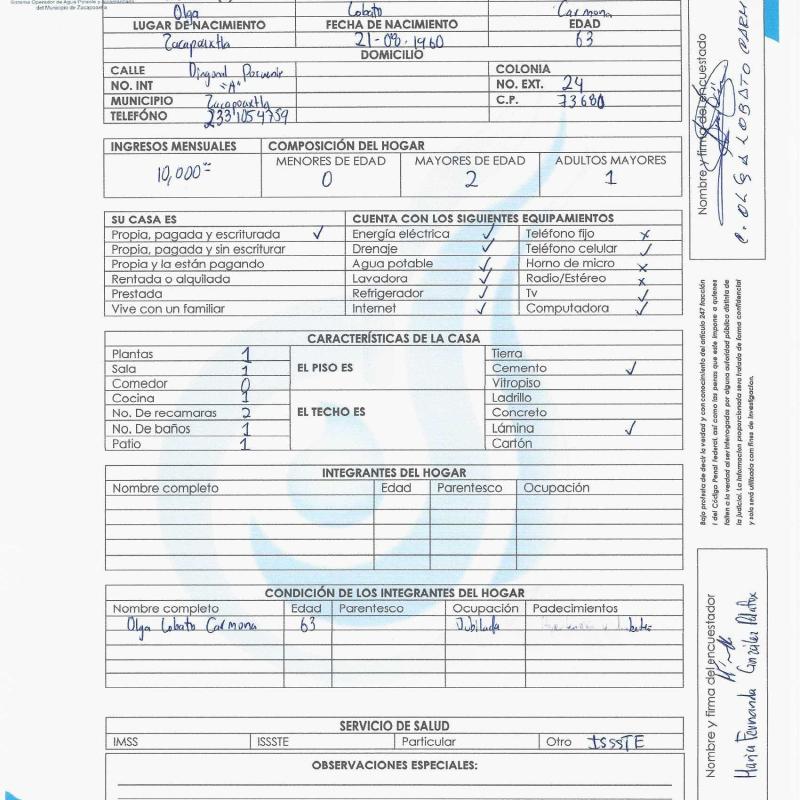 Sistema Operador de Agua Potable y Alcantarillado
del Municipio de Zacapoaxtla
Olga Lobato Carmona
LUGAR DE NACIMIENTO FECHA DE NACIMIENTO EDAD
Zacapoaxtla 21-09-1960 63
DOMICILIO
CALLE Diagonal Porvenir COLONIA
NO. INT "A" NO. EXT. 24
MUNICIPIO Zacapoaxtla C.P. 73680
TELEFÓNO 2331054759
INGRESOS MENSUALES COMPOSICIÓN DEL HOGAR
MENORES DE EDAD MAYORES DE EDAD ADULTOS MAYORES
10,000 0 2 1
SU CASA ES CUENTA CON LOS SIGUIENTES EQUIPAMIENTOS
Propia, pagada y escriturada ✓ Energía eléctrica ✓ Teléfono fijo x
Propia, pagada y sin escriturar Drenaje ✓ Teléfono celular ✓
Propia y la están pagando Agua potable ✓ Horno de micro x
Rentada o alquilada Lavadora ✓ Radio/Estéreo x
Prestada Refrigerador ✓ Tv ✓
Vive con un familiar Internet ✓ Computadora ✓
CARACTERÍSTICAS DE LA CASA
Plantas 1 Tierra
Sala 1 EL PISO ES Cemento ✓
Comedor 0 Vitropiso
Cocina 1 Ladrillo
No. De recamaras 2 EL TECHO ES Concreto
No. De baños 1 Lámina ✓
Patio 1 Cartón
INTEGRANTES DEL HOGAR
Nombre completo Edad Parentesco Ocupación
CONDICIÓN DE LOS INTEGRANTES DEL HOGAR
Nombre completo Edad Parentesco Ocupación Padecimientos
Olga Lobato Carmona 63 Jubilada
SERVICIO DE SALUD
IMSS ISSSTE Particular Otro ISSSTE
OBSERVACIONES ESPECIALES:
Nombre y firma del encuestado
C. OLGA LOBATO CARM
Bajo protesta de decir la verdad y con conocimiento del artículo 247 fracción
I del Código Penal Federal, así como las penas que este impone a quienes
falten a la verdad al ser interrogados por alguna autoridad pública distinta de
la judicial. La información proporcionada sera tratada de forma confidencial
y solo será utilizada con fines de investigacion.
Nombre y firma del encuestador
Maria Fernanda González